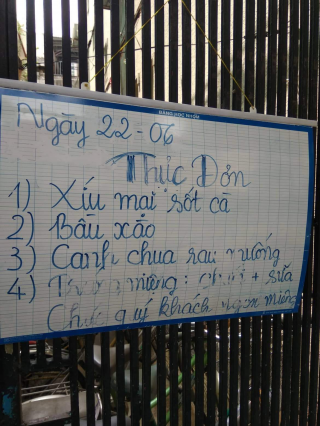 Ngày 22-06
Thực Đơn
1) Xíu mại sốt cà
2) Bầu xào
3) Canh chua rau muống
4) miệng: + sữa
Chúc quý khách ngon miệng